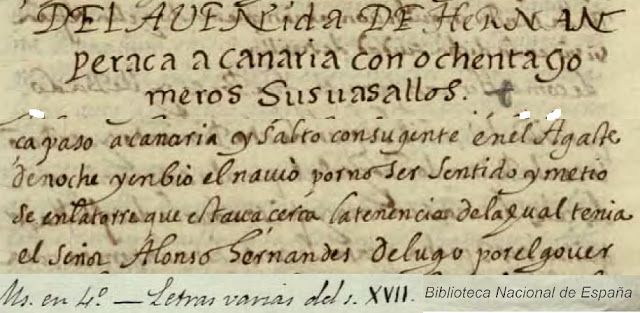 DE LA UENida DE HerNAN
peraca a canaria con ochentago
meros Susuasallos.
ca paso acanaria y Salto consugente en el Agaete
denoche yenbio el nauio porno ser sentido y metio
se enlatorre que estaua cerca latenencia delaqual tenia
el señor Alonso hernandes delugo porel gouer
Ms. en 4º — Letras varias del s. XVII. Biblioteca Nacional de España